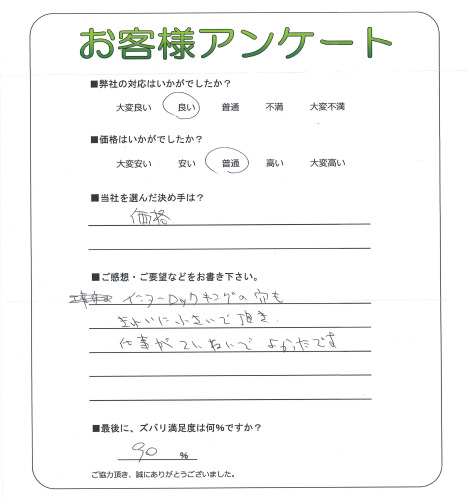 お客様アンケート
■弊社の対応はいかがでしたか？
大変良い 良い 普通 不満 大変不満
■価格はいかがでしたか？
大変安い 安い 普通 高い 大変高い
■当社を選んだ決め手は？
価格
■ご感想・ご要望などをお書き下さい。
インターロックキングの穴も
きれいに小さいで頂き
仕事がていねいでよかったです
■最後に、ズバリ満足度は何%ですか？
90 %
ご協力頂き、誠にありがとうございました。